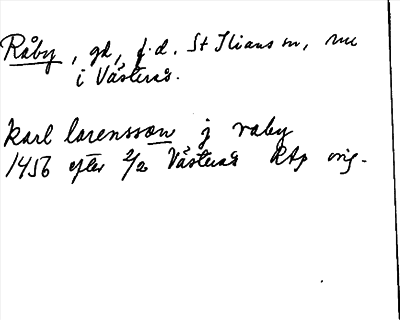 Råby, gd, f.d. St Ilians sn, nu
i Västerås.
Karl larensson j raby
1456 efter 2/2 Västerås RAp orig.